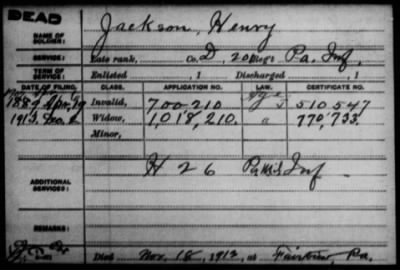 DEAD
NAME OF SOLDIER: Jackson, Henry
SERVICE: Late rank, Co. D, 206 Reg't Pa. Inf.
TERM OF SERVICE: Enlisted , 1 Discharged , 1
DATE OF FILING. CLASS. APPLICATION NO. LAW. CERTIFICATE NO.
1889 Invalid, 700 210 510 547
1912, Dec. Widow, 1,018,210. 770,733.
Minor,
ADDITIONAL SERVICES: H 26 Pa Inf
Died Nov. 18, 1912, at Pa.